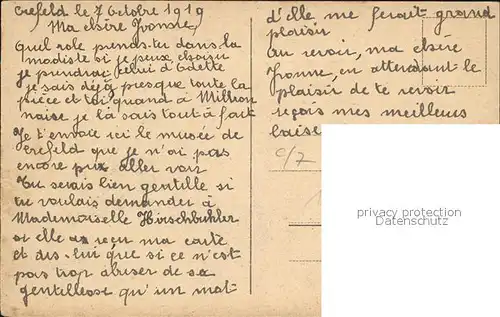 Crefeld le 7 Octobre 1919
Ma chère Ivonne,
Quel role prends-tu dans la
modiste si je peux choisir
je prendrai celui d'Odette
je sais déjà presque toute la
pièce et toi quand à Million
naise je la sais tout à fait
Je t'envoie ici le musée de
Crefeld que je n'ai pas
encore pu aller voir
Tu serais bien gentille si
tu voulais demander à
Mademoiselle Hirschbuhler
si elle a reçu ma carte
et dis-lui que si ce n'est
pas trop abuser de sa
gentillesse qu'un mot
d'elle me ferait grand
plaisir
Au revoir, ma chère
Ivonne, en attendant le
plaisir de te revoir
reçois mes meilleurs
baise
privacy protection
DSGVO